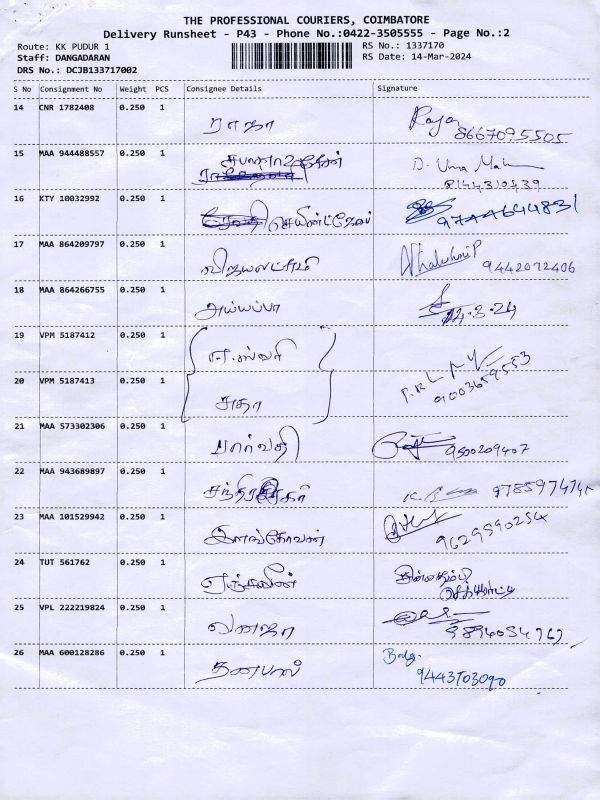 THE PROFESSIONAL COURIERS, COIMBATORE
Delivery Runsheet - P43 - Phone No.:0422-3505555 - Page No.:2
Route: KK PUDUR 1 RS No.: 1337170
Staff: DANGADARAN RS Date: 14-Mar-2024
DRS No.: DCJB133717002
S No Consignment No Weight PCS Consignee Details Signature
14 CNR 1782408 0.250 1
ராஜா Raja
8667095505
15 MAA 944488557 0.250 1
D. Uma
8144310439
16 KTY 10032992 0.250 1
9744644831
17 MAA 864209797 0.250 1
விஜயலட்சுமி 9442072406
18 MAA 864266755 0.250 1
அய்யப்பா 14-3-24
19 VPM 5187412 0.250 1
ஈஸ்வரி
9003659553
20 VPM 5187413 0.250 1
சுதா
21 MAA 573302306 0.250 1
பார்வதி 9500209407
22 MAA 943689897 0.250 1
23 MAA 101529942 0.250 1
இளங்கோவன் 9629590254
24 TUT 561762 0.250 1
25 VPL 222219824 0.250 1
வனஜா
26 MAA 600128286 0.250 1
தனபால்
9443703090